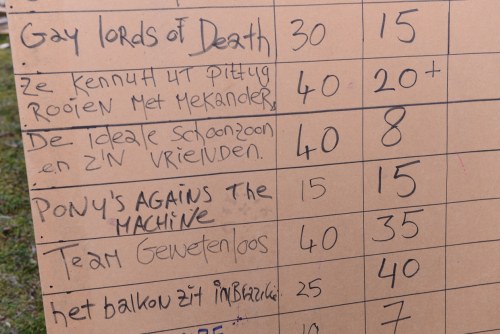 Gay lords of Death 30 15
Ze kennuh ut pittug 40 20+
Rooien met mekander
De ideale schoonzoon 40 8
en z'n vrienden.
Pony's agains the 15 15
machine
Team Gewetenloos 40 35
het balkon zit in 25 40
7